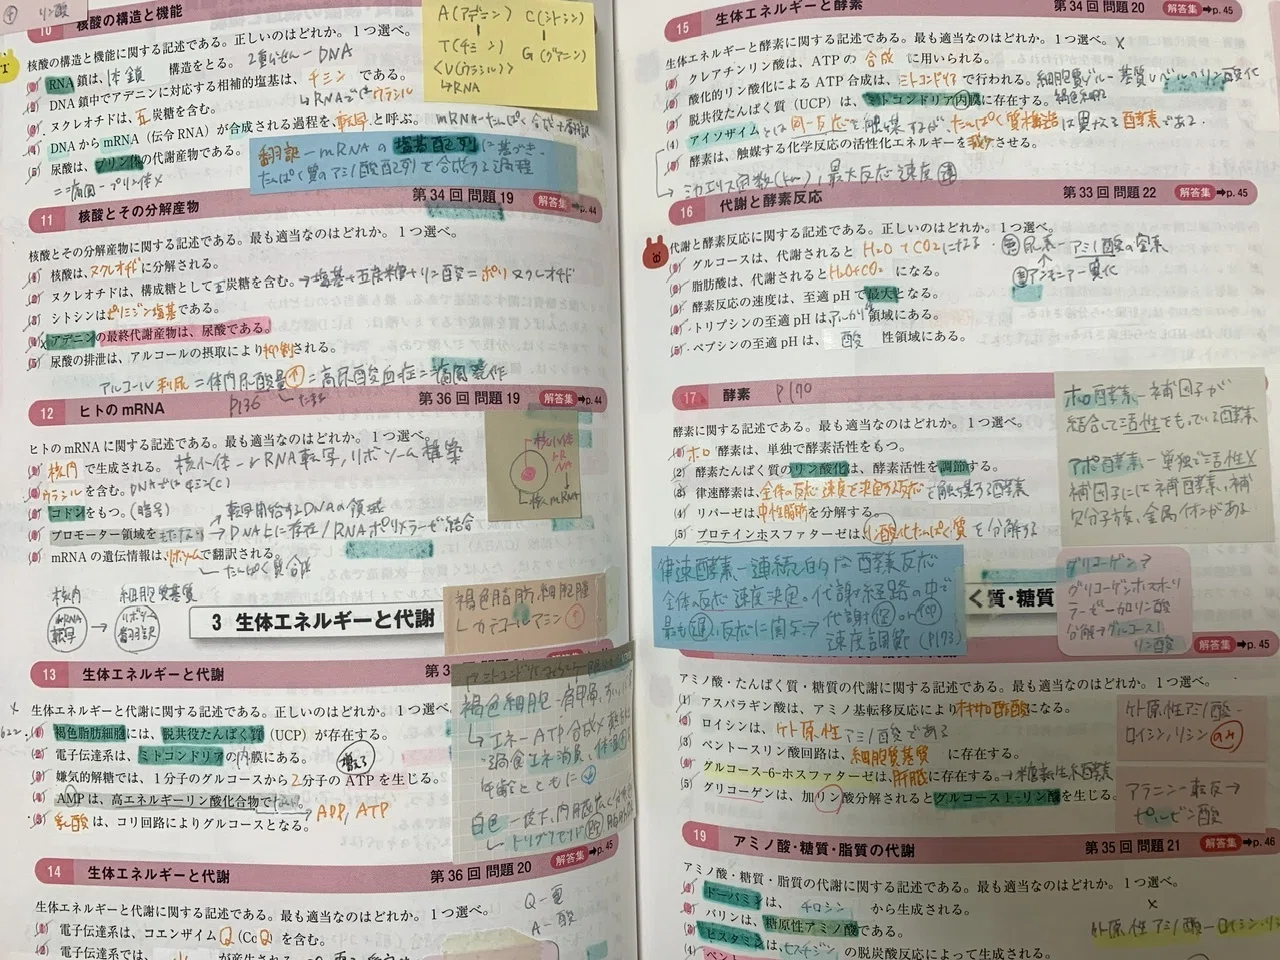 リン酸
10 核酸の構造と機能
A(アデニン) C(シトシン)
T(チミン) G(グアニン)
<U(ウラシル)>
↳RNA
核酸の構造と機能に関する記述である。正しいのはどれか。1つ選べ。
RNA鎖は、 構造をとる。 DNA
DNA鎖中でアデニンに対応する相補的塩基は、チミンである。
↳RNAではウラシル
ヌクレオチドは、五炭糖を含む。
(4) DNAからmRNA(伝令RNA)が合成される過程を、転写と呼ぶ。
(5) 尿酸は、プリン体の代謝産物である。
翻訳ーmRNAの塩基配列に基づき、
たんぱく質のアミノ酸配列を合成する過程
11 核酸とその分解産物 第34回 問題19 解答集➡p.44
核酸とその分解産物に関する記述である。最も適当なのはどれか。1つ選べ。
核酸は、ヌクレオチドに分解される。
ヌクレオチドは、構成糖として五炭糖を含む。→塩基+五炭糖+リン酸=ポリヌクレオチド
シトシンはピリミジン塩基である。
アデニンの最終代謝産物は、尿酸である。
(5) 尿酸の排泄は、アルコールの摂取により抑制される。
アルコール利尿=体内尿酸量↑=高尿酸血症=痛風発作
P136
12 ヒトのmRNA 第36回 問題19 解答集➡p.44
ヒトのmRNAに関する記述である。最も適当なのはどれか。1つ選べ。
核内で生成される。核小体ーrRNA転写,リボソーム構築
ウラシルを含む。DNAではチミン(C)
コドンをもつ。(暗号)
転写開始するDNAの領域
プロモーター領域をもたない→DNA上に存在/RNAポリメラーゼ結合
mRNAの遺伝情報は、リボソームで翻訳される。
たんぱく質合成
核小体
rRNA
核ーmRNA
核内 細胞質基質
mRNA 転写 → リボソーム 翻訳
3 生体エネルギーと代謝
褐色脂肪細胞膜
↳カテコールアミン↑
13 生体エネルギーと代謝
生体エネルギーと代謝に関する記述である。正しいのはどれか。1つ選べ。
褐色脂肪細胞には、脱共役たんぱく質(UCP)が存在する。
(2) 電子伝達系は、ミトコンドリアの内膜にある。
嫌気的解糖では、1分子のグルコースから2分子のATPを生じる。
AMPは、高エネルギーリン酸化合物でない。
乳酸は、コリ回路によりグルコースとなる。
褐色細胞ー肩甲骨,
14 生体エネルギーと代謝 第36回 問題20 解答集➡p.45
生体エネルギーと代謝に関する記述である。最も適当なのはどれか。1つ選べ。
(1) 電子伝達系は、コエンザイムQ(CoQ)を含む。
(2) 電子伝達系では、
15 生体エネルギーと酵素 第34回 問題20 解答集➡p.45
生体エネルギーと酵素に関する記述である。最も適当なのはどれか。1つ選べ。×
クレアチンリン酸は、ATPの合成に用いられる。
酸化的リン酸化によるATP合成は、ミトコンドリアで行われる。
脱共役たんぱく質(UCP)は、ミトコンドリア内膜に存在する。褐色細胞
(4) アイソザイムとは同一反応を触媒するが、たんぱく質構造は異なる酵素である。
酵素は、触媒する化学反応の活性化エネルギーを減少させる。
→ミカエリス定数(km),最大反応速度
16 代謝と酵素反応 第33回 問題22 解答集➡p.45
代謝と酵素反応に関する記述である。最も適当なのはどれか。1つ選べ。
グルコースは、代謝されるとH2OとCO2になる。
脂肪酸は、代謝されるとH2O+CO2になる。
酵素反応の速度は、至適pHで最大となる。
トリプシンの至適pHはアルカリ領域にある。
(5) ペプシンの至適pHは、酸性領域にある。
17 酵素 P170
酵素に関する記述である。最も適当なのはどれか。1つ選べ。
ホロ酵素は、単独で酵素活性をもつ。
(2) 酵素たんぱく質のリン酸化は、酵素活性を調節する。
律速酵素は、全体の反応速度を決定する反応を触媒する酵素
(4) リパーゼは、中性脂肪を分解する。
(5) プロテインホスファターゼは、リン酸化たんぱく質を分解する
ホロ酵素ー補因子が
結合して活性をもっている酵素
アポ酵素ー単独で活性×
補因子には補酵素、補
欠分子族、金属イオンがある
律速酵素ー連続的な酵素反応
全体の反応速度決定。代謝経路の中で
最も遅い反応に関与→代謝
速度調節(P173)
く質・糖質
グリコーゲン→
グリコーゲンホスホリ
ラーゼー加リン酸
分解→グルコース1
リン酸
解答集➡p.45
アミノ酸・たんぱく質・糖質の代謝に関する記述である。最も適当なのはどれか。1つ選べ。
(1) アスパラギン酸は、アミノ基転移反応によりオキサロ酢酸になる。
ロイシンは、ケト原性アミノ酸である
(3) ペントースリン酸回路は、細胞質基質に存在する。
グルコース-6-ホスファターゼは、肝臓に存在する。→糖新生系酵素
(5) グリコーゲンは、加リン酸分解されるとグルコース1-リン酸を生じる。
ケト原性アミノ酸ー
ロイシン,リシンのみ
アラニンー転写→
ピルビン酸
19 アミノ酸・糖質・脂質の代謝 第35回 問題21 解答集➡p.46
アミノ酸・糖質・脂質の代謝に関する記述である。最も適当なのはどれか。1つ選べ。
ドーパミンは、チロシンから生成される。
バリンは、糖原性アミノ酸である。
ヒスタミンは、ヒスチジンの脱炭酸反応によって生成する。
ケト原性アミノ酸ーロイシン・リシ